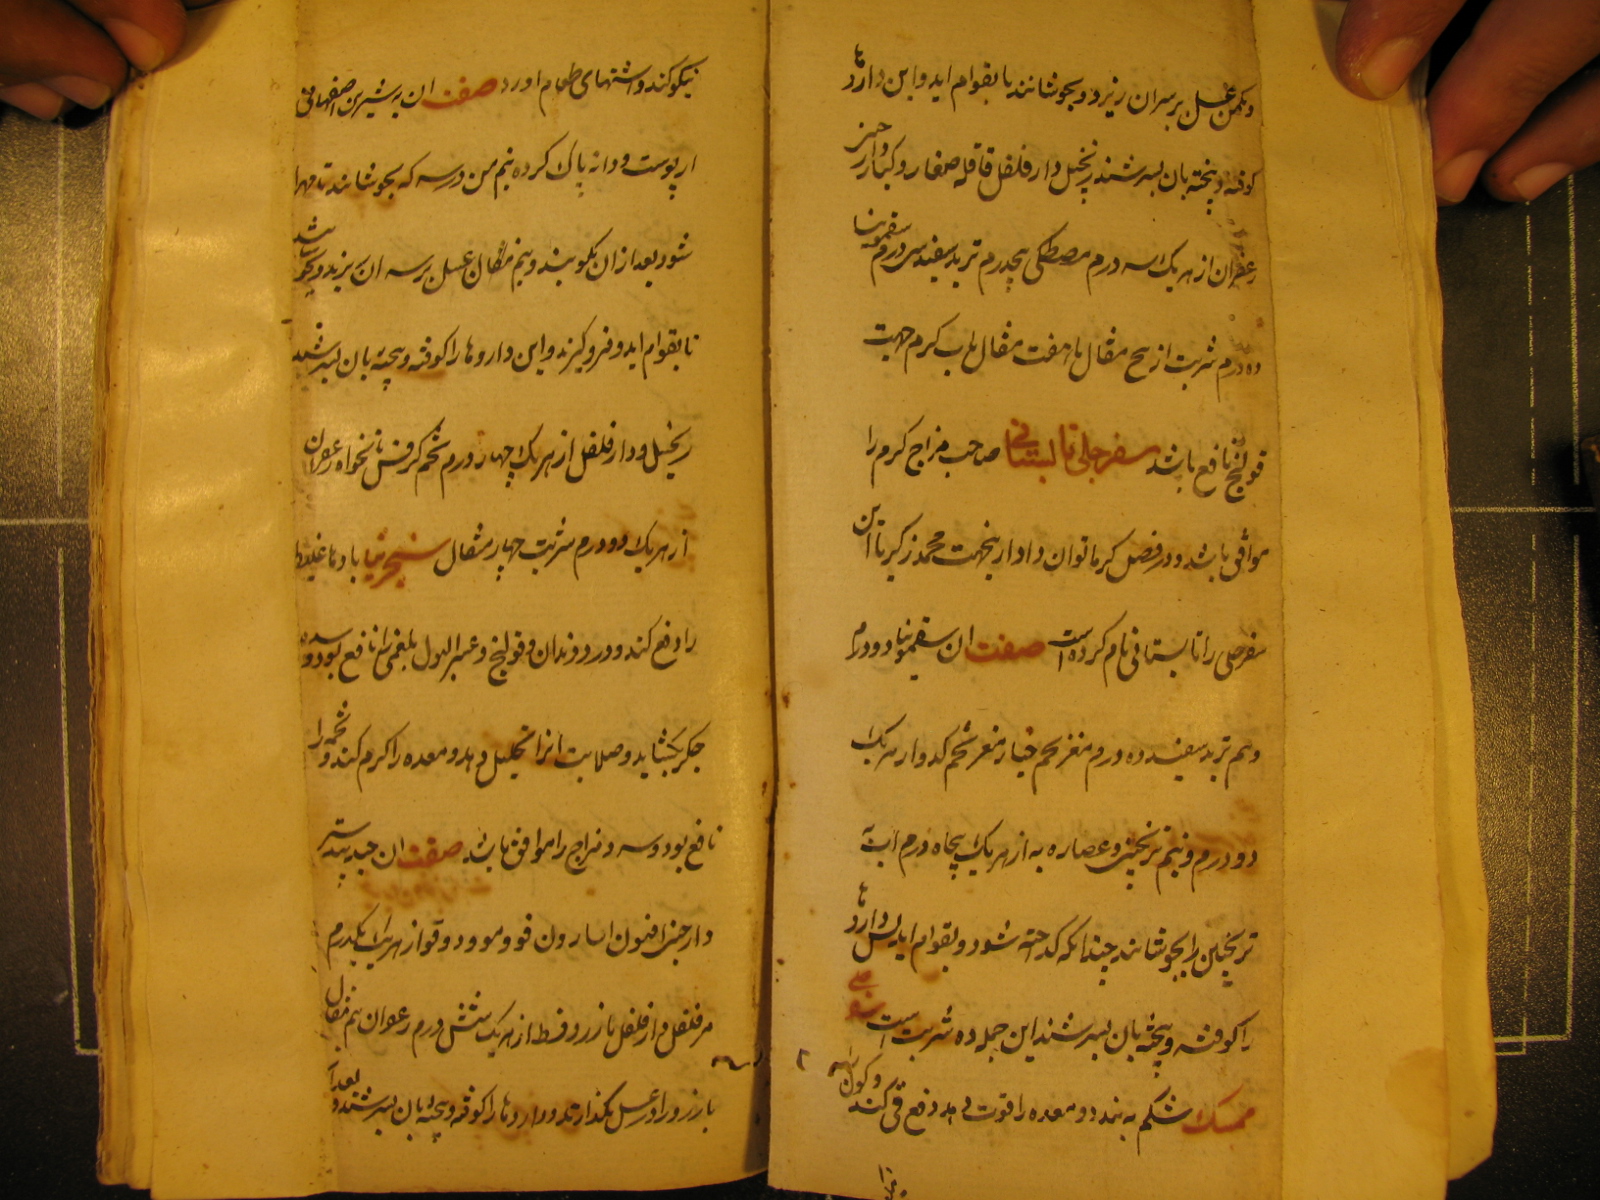 و یکمن عسل بر سران ریزد و بجوشانند تا بقوام اید و این دارو ها
کوفته و پخته بان بسرشند زنجبیل دار فلفل قاقله صغار و کبار دارچینی
زعفران از هر یک سه درم مصطکی پنجدرم تربد سفید سی درم سقمونیا
ده درم شربت از پنج مثقال تا هفت مثقال باب کرم جهت
قولنج نافع باشد سفرجلی تابستانی صاحب مزاج کرم را
موافق باشد و در فصل کرما توان داد از بنجهت محمد زکریا این
سفرجلی را تابستانی نام کرده است صفت ان سقمونیا دو درم
و نیم تربد سفید ده درم مغز تخم خیار مغز تخم کدو از هر یک
دو درم و نیم ترنجبین و عصاره به از هر یک پنجاه درم اب به
ترنجبین را بجوشانند چندانکه کداخته شود و بقوام اید پس دارو ها
را کوفته و پخته بان بسرشند این جمله ده شربت است سفرجلی
ممسک شکم به بندد و معده را قوت دهد و دفع قی کند و کوارش
نیکو کند و اشتهای طعام اورد صفت ان به شیرین اصفهانی
از پوست و دانه پاک کرده نیم من در سرکه بجوشانند تا مهرا
شود بعد از ان بکوبند و نیم من عسل بر سر ان ریزند و بجوشانند
تا بقوام اید و فرو کیرند و این دارو ها را کوفته و پخته بان بسرشند
زنجبیل و دار فلفل از هر یک چهار درم تخم کرفس نانخواه زعفران
از هر یک دو درم شربت چهار مثقال سنجرنیا بادهای غلیظ
را دفع کند و درد دندان و قولنج و عسر البول بلغمی را نافع بود و سده
جکر بکشاید و صلابت انرا تحلیل دهد و معده را کرم کند و تخمه را
نافع بود و سرد مزاج را موافق باشد صفت ان جندبیدستر
دارچینی افیون اسارون فو و مو و دوقو از هر یک یکدرم
مر فلفل دار فلفل بارزد قسط از هر یک شش درم زعفران نیم مثقال
بارزد را در عسل بکدازند و دارو ها را کوفته و پخته بان بسرشند و بعد از